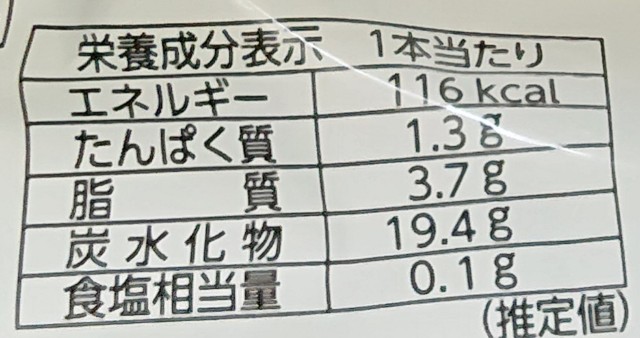 栄養成分表示 1本当たり
エネルギー 116 kcal
たんぱく質 1.3g
脂質 3.7g
炭水化物 19.4g
食塩相当量 0.1g
(推定値)